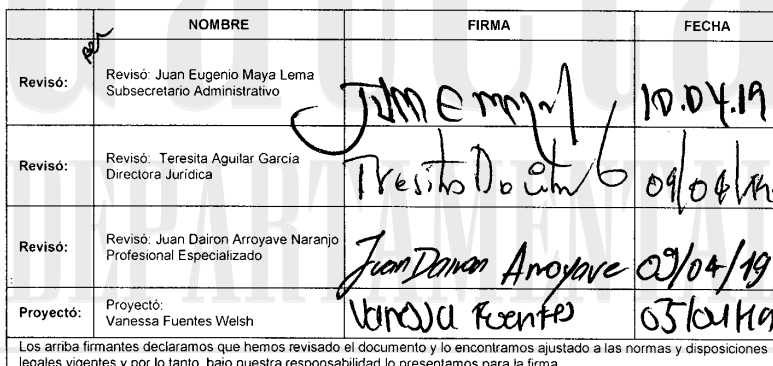 NOMBRE FIRMA FECHA
Revisó: Revisó: Juan Eugenio Maya Lema
Subsecretario Administrativo
10.04.19
Revisó: Revisó: Teresita Aguilar García
Directora Jurídica
Revisó: Revisó: Juan Dairon Arroyave Naranjo
Profesional Especializado
Juan Dairon Arroyave 09/04/19
Proyectó: Proyectó:
Vanessa Fuentes Welsh
Vanessa Fuentes
Los arriba firmantes declaramos que hemos revisado el documento y lo encontramos ajustado a las normas y disposiciones
legales vigentes y por lo tanto, bajo nuestra responsabilidad lo presentamos para la firma.
DEPARTAMENTAL